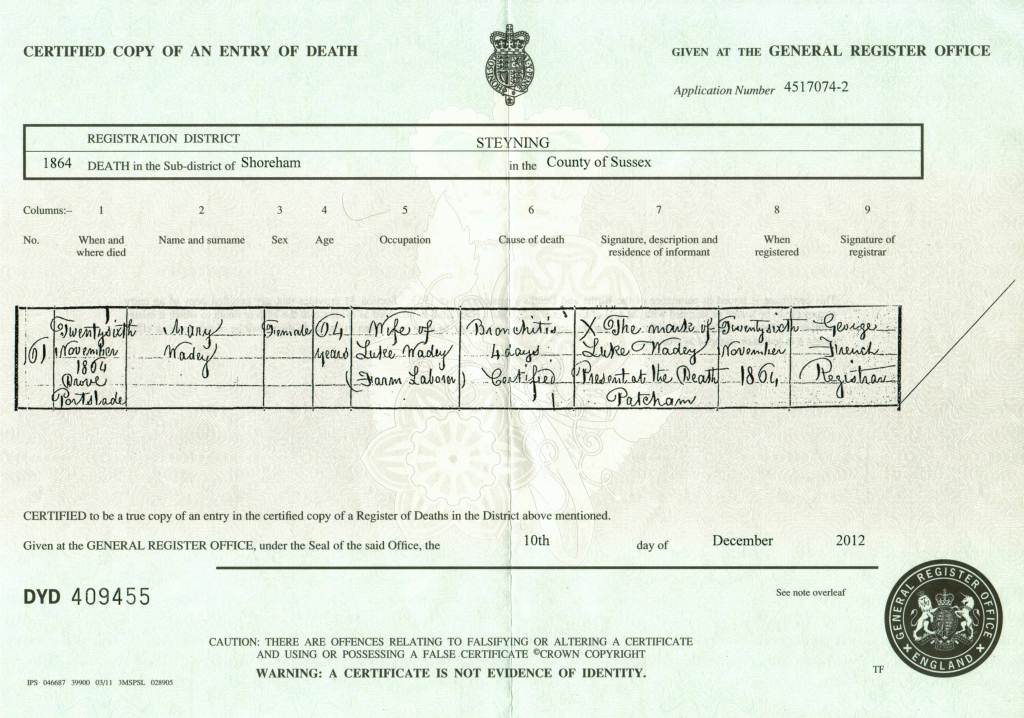 CERTIFIED COPY OF AN ENTRY OF DEATH
GIVEN AT THE GENERAL REGISTER OFFICE
Application Number 4517074-2
REGISTRATION DISTRICT STEYNING
1864 DEATH in the Sub-district of Shoreham in the County of Sussex
Columns:– 1 2 3 4 5 6 7 8 9
No.
When and
where died
Name and surname
Sex
Age
Occupation
Cause of death
Signature, description and
residence of informant
When
registered
Signature of
registrar
161
Twenty sixth
November
1864
Drove
Portslade
Mary
Wadey
Female
64
years
Wife of
Luke Wadey
(Farm Laborer)
Bronchitis
4 days
Certified
X The mark of
Luke Wadey
Present at the Death
Patcham
Twenty sixth
November
1864
George
French
Registrar
CERTIFIED to be a true copy of an entry in the certified copy of a Register of Deaths in the District above mentioned.
Given at the GENERAL REGISTER OFFICE, under the Seal of the said Office, the 10th day of December 2012
DYD 409455
See note overleaf
GENERAL REGISTER OFFICE
ENGLAND
CAUTION: THERE ARE OFFENCES RELATING TO FALSIFYING OR ALTERING A CERTIFICATE
AND USING OR POSSESSING A FALSE CERTIFICATE ©CROWN COPYRIGHT
WARNING: A CERTIFICATE IS NOT EVIDENCE OF IDENTITY.
TF
IPS 046687 39900 03/11 3MSPSL 028905